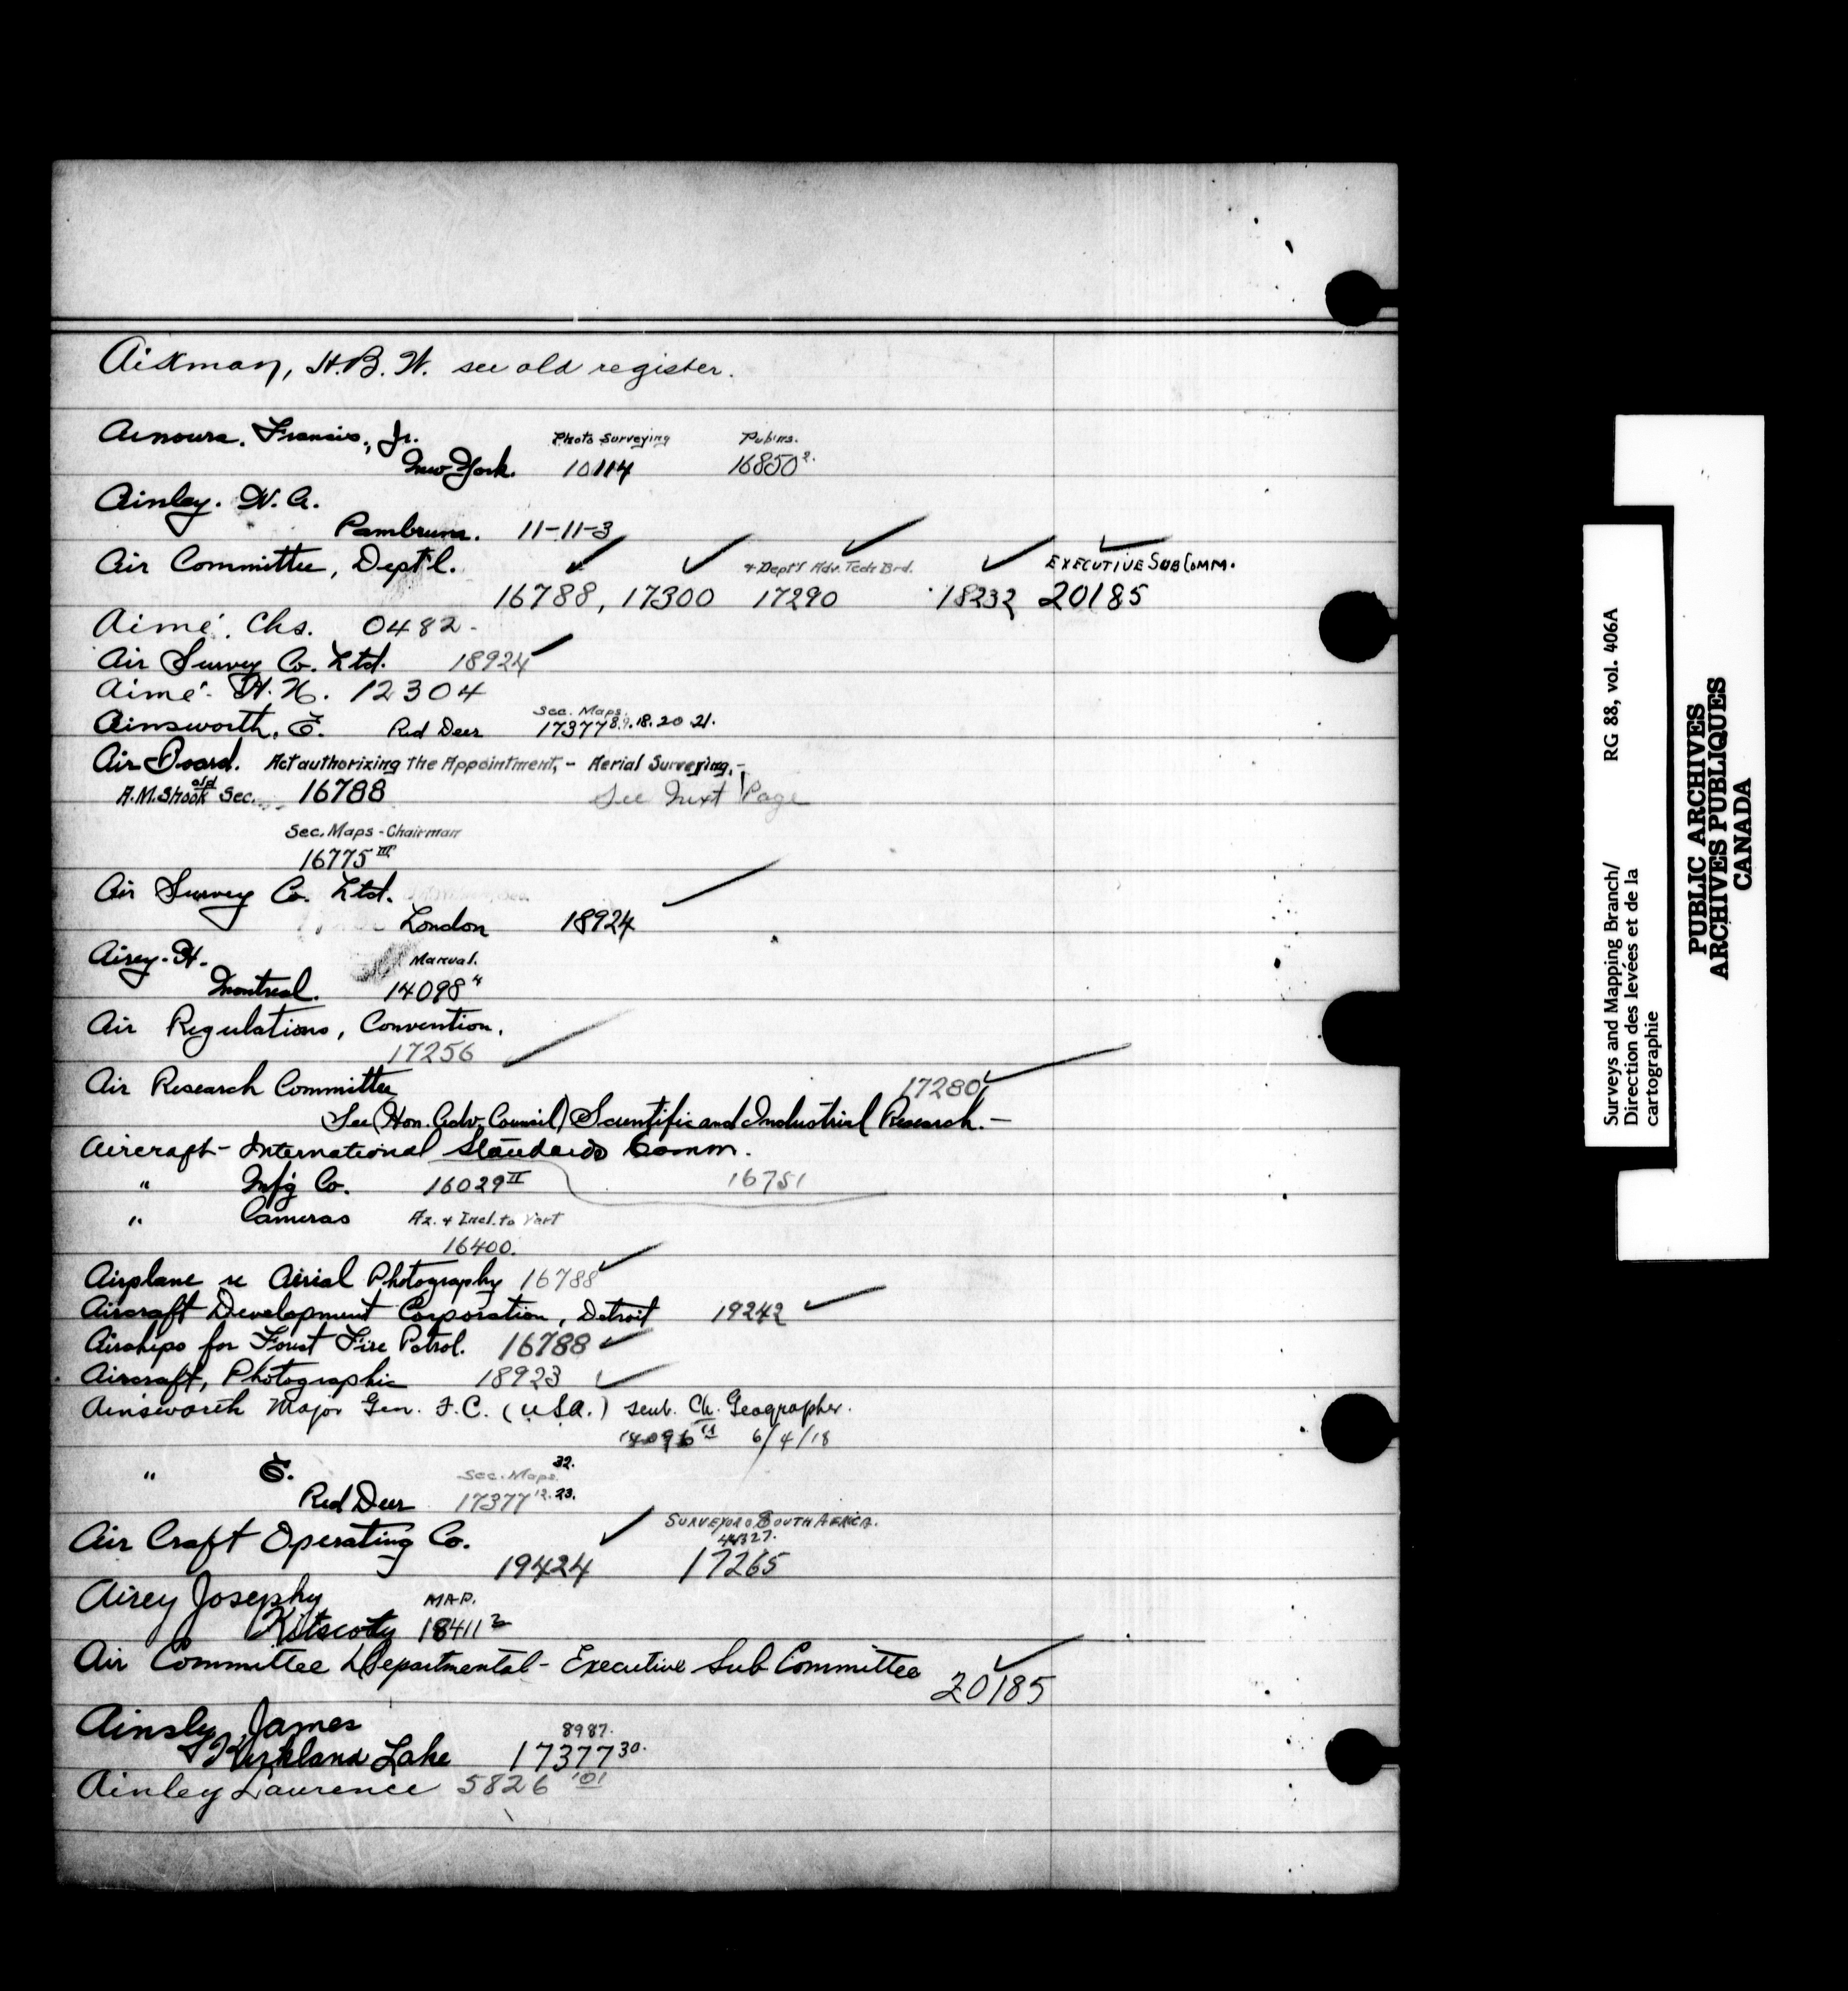 Aikman, H.B.W. see old register.
Ainoura. Francis, Jr. Photo Surveying Pub'ns.
New York. 10114 16850²·
Ainley. W. A.
Pambrum. 11-11-3
Air Committee, Dept'l. & Dept'l Adv. Tech Brd. EXECUTIVE SUB COMM.
16788, 17300 17290 18232 20185
Aimé. Chs. 0482-
Air Survey Co. Ltd. 18924
Aimé. H. 12304
Ainsworth, E. Red Deer Sec. Maps. 17377 8.9.18.20.21.
Air Board. Act authorizing the Appointment,- Aerial Surveying,-
A.M. Shook old Sec. 16788 See Next Page
Sec. Maps - Chairman
16775 III
Air Survey Co. Ltd.
London 18924
Airey. H. Manual.
Montreal. 14098⁴
Air Regulations, Convention.
17256
Air Research Committee 17280
See (Hon. Adv. Council) Scientific and Industrial Research.-
Aircraft - International Standards Comm.
" Mf'g Co. 16029 II 16751
" Cameras Az. & Incl. to Vert
16400.
Airplane re Aerial Photography 16788
Aircraft Development Corporation, Detroit 19242
Airships for Forest Fire Patrol. 16788
Aircraft, Photographic 18923
Ainsworth Major Gen. F.C. (U.S.A.) Ch. Geographer.
14096 6/4/18
" E. Sec. Maps. 32.
Red Deer 17377 12.23.
Air Craft Operating Co. SURVEYOR SOUTH AFRICA.
19424 17265
Airey Josephy MAP.
Kitscoty 18411
Air Committee Departmental - Executive Sub Committee
20185
Ainsly James 8987.
Kirkland Lake 17377 30.
Ainley Laurence 5826 '01
Surveys and Mapping Branch/ RG 88, vol. 406A
Direction des levées et de la
cartographie
PUBLIC ARCHIVES
ARCHIVES PUBLIQUES
CANADA